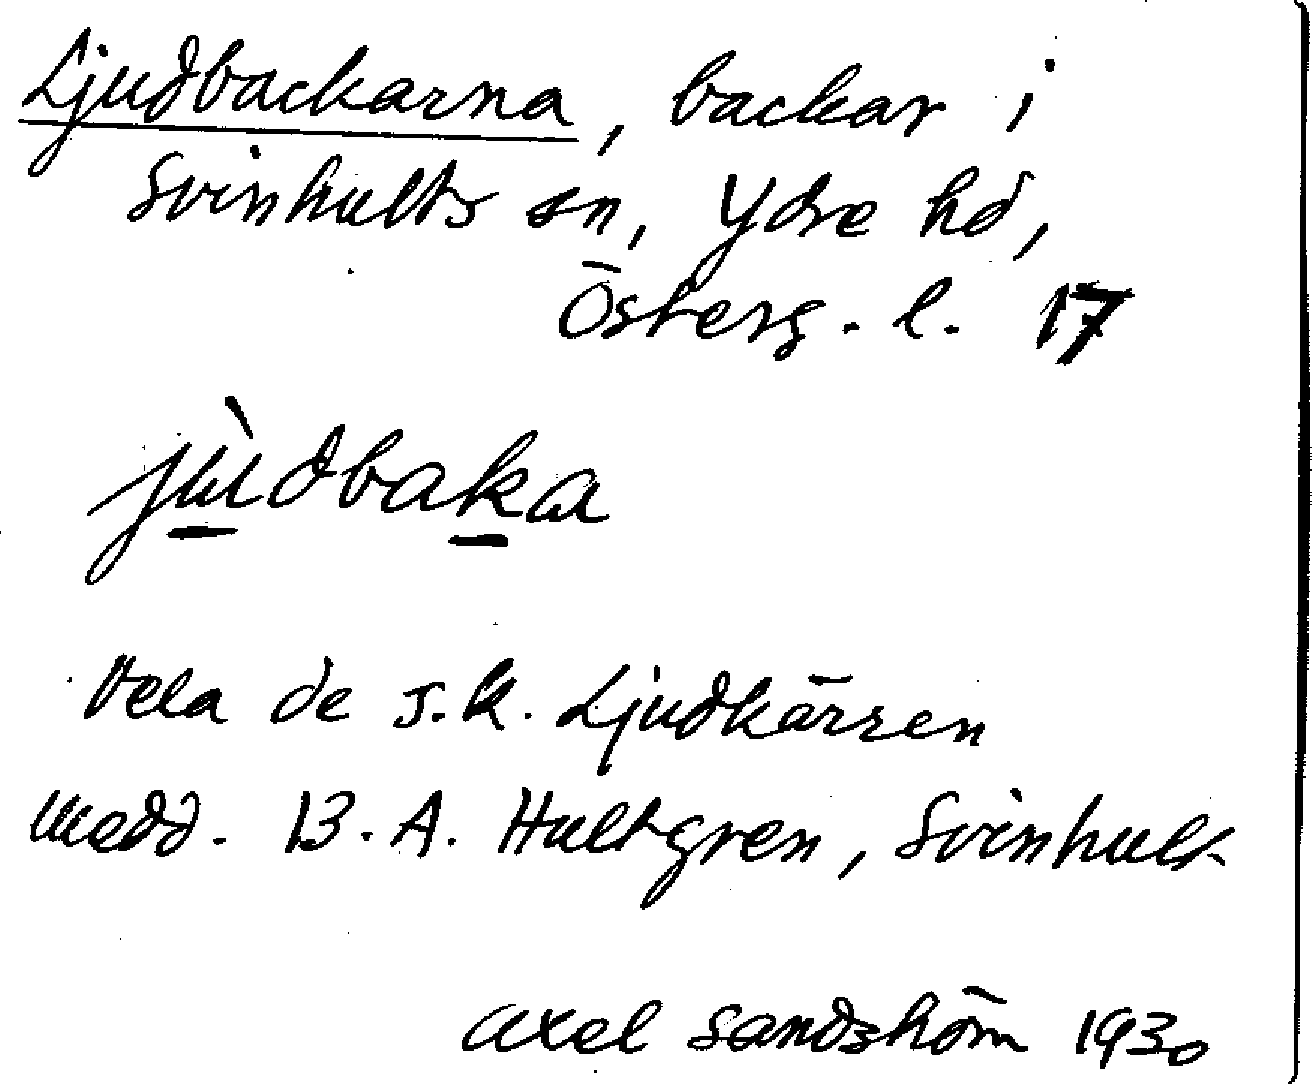 Ljudbackarna, backar i
Svinhults sn, Ydre hd,
Österg. l. 17
jùdbaka
Vela de s.k. Ljudkärren
Medd. B. A. Hultgren, Svinhult
Axel Sandström 1930